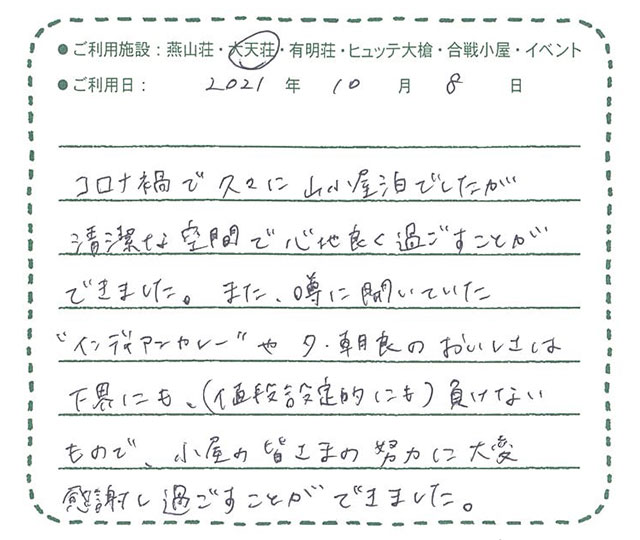 ●ご利用施設：燕山荘・大天荘・有明荘・ヒュッテ大槍・合戦小屋・イベント
●ご利用日： 2021 年 10 月 8 日
コロナ禍で久々に山小屋泊でしたが
清潔な空間で心地良く過ごすことが
できました。また、噂に聞いていた
"インディアンカレー"や夕・朝食のおいしさは
下界にも、(値段設定的にも)負けてない
もので、小屋の皆さまの努力に大変
感謝し過ごすことができました。